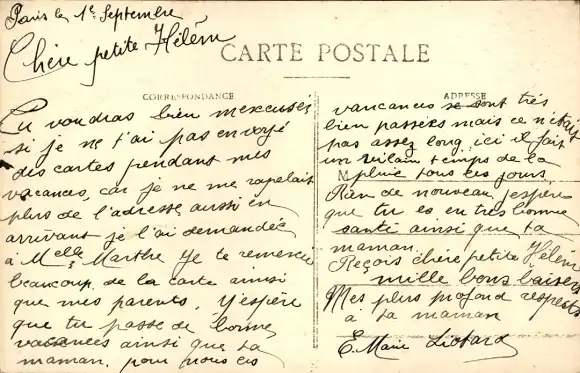 Paris le 1e Septembre
Chère petite Hélèn
CARTE POSTALE
CORRESPONDANCE
ADRESSE
Tu voudras bien mexcuser
si je ne t'ai pas envoyé
des cartes pendant mes
vacances, car je ne me rapelait
plus de l'adresse aussi en
arrivant je l'ai demandée
à Melle Marthe je te remercie
beaucoup de la carte ainsi
que mes parents. J'espère
que tu passe de bonne
vacances ainsi que ta
maman. pour nous ces
vancances se sont très
bien passées mais ce n'était
pas assez long, ici il fait
un vilain temps de la
M pluie tous ces jours.
Rien de nouveau j'espère
que tu es en très bonne
santé ainsi que ta
maman.
Reçois chère petite Hélèn
mille bons baisers
Mes plus profond respects
à ta maman
E. Marie